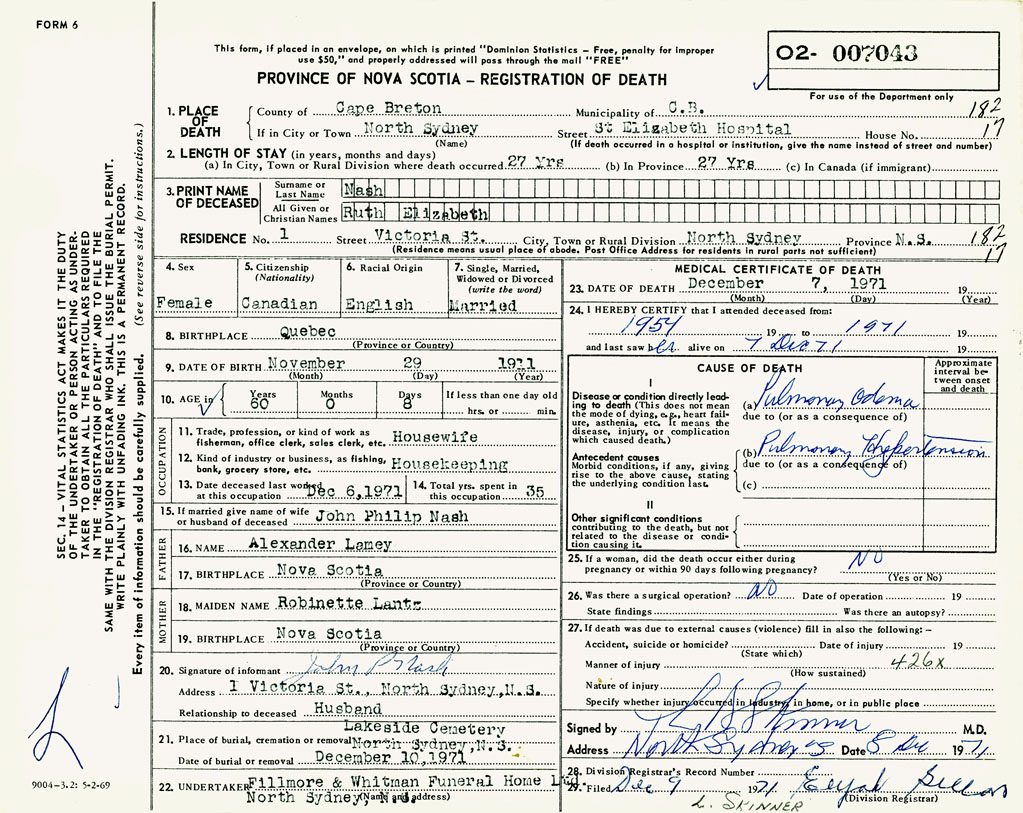 FORM 6
This form, if placed in an envelope, on which is printed "Dominion Statistics – Free, penalty for improper
use $50," and properly addressed will pass through the mail "FREE"
PROVINCE OF NOVA SCOTIA – REGISTRATION OF DEATH
02- 007043
For use of the Department only
1. PLACE OF DEATH
County of Cape Breton Municipality of C.B. 182
If in City or Town North Sydney Street St Elizabeth Hospital House No. 17
(Name) (If death occurred in a hospital or institution, give the name instead of street and number)
2. LENGTH OF STAY (in years, months and days)
(a) In City, Town or Rural Division where death occurred 27 Yrs (b) In Province 27 Yrs (c) In Canada (if immigrant)
3. PRINT NAME OF DECEASED
Surname or Last Name Nash
All Given or Christian Names Ruth Elizabeth
RESIDENCE No. 1 Street Victoria St. City, Town or Rural Division North Sydney Province N.S. 182
(Residence means usual place of abode. Post Office Address for residents in rural parts not sufficient) 17
4. Sex
Female
5. Citizenship
(Nationality)
Canadian
6. Racial Origin
English
7. Single, Married,
Widowed or Divorced
(write the word)
Married
8. BIRTHPLACE Quebec
(Province or Country)
9. DATE OF BIRTH November 29 1911
(Month) (Day) (Year)
10. AGE in
Years Months Days If less than one day old
60 0 8 hrs. or min.
OCCUPATION
11. Trade, profession, or kind of work as
fisherman, office clerk, sales clerk, etc. Housewife
12. Kind of industry or business, as fishing,
bank, grocery store, etc. Housekeeping
13. Date deceased last worked
at this occupation Dec 6,1971
14. Total yrs. spent in
this occupation 35
15. If married give name of wife
or husband of deceased John Philip Nash
FATHER
16. NAME Alexander Lamey
17. BIRTHPLACE Nova Scotia
(Province or Country)
MOTHER
18. MAIDEN NAME Robinette Lantz
19. BIRTHPLACE Nova Scotia
(Province or Country)
20. Signature of informant John P Nash
Address 1 Victoria St., North Sydney,N.S.
Relationship to deceased Husband
Lakeside Cemetery
21. Place of burial, cremation or removal North Sydney,N.S.
Date of burial or removal December 10,1971
22. UNDERTAKER Fillmore & Whitman Funeral Home Ltd.
North Sydney N S
(Name and address)
MEDICAL CERTIFICATE OF DEATH
23. DATE OF DEATH December 7, 1971 19
(Month) (Day) (Year)
24. I HEREBY CERTIFY that I attended deceased from:
1954 19 to 1971 19
and last saw her alive on 7 Dec 71 19
CAUSE OF DEATH
Approximate
interval be-
tween onset
and death
I
Disease or condition directly lead-
ing to death (This does not mean
the mode of dying, e.g., heart fail-
ure, asthenia, etc. It means the
disease, injury, or complication
which caused death.)
(a) Pulmonary Odema
due to (or as a consequence of)
Antecedent causes
Morbid conditions, if any, giving
rise to the above cause, stating
the underlying condition last.
(b) Pulmonary Hypertension
due to (or as a consequence of)
(c)
II
Other significant conditions
contributing to the death, but not
related to the disease or condi-
tion causing it.
25. If a woman, did the death occur either during
pregnancy or within 90 days following pregnancy? NO
(Yes or No)
26. Was there a surgical operation? NO Date of operation 19
State findings Was there an autopsy?
27. If death was due to external causes (violence) fill in also the following: –
Accident, suicide or homicide? Date of injury 19
(State which)
Manner of injury 426X
(How sustained)
Nature of injury
Specify whether injury occurred in industry, in home, or in public place
Signed by L S Skinner M.D.
Address North Sydney NS Date 8 Dec 1971
28. Division Registrar's Record Number
29. Filed Dec 9 1971
(Division Registrar)
L. SKINNER
SEC. 14 – VITAL STATISTICS ACT MAKES IT THE DUTY
OF THE UNDERTAKER OR PERSON ACTING AS UNDER-
TAKER TO OBTAIN ALL THE PARTICULARS REQUIRED
IN THE "REGISTRATION OF DEATH" AND TO FILE THE
SAME WITH THE DIVISION REGISTRAR WHO SHALL ISSUE THE BURIAL PERMIT.
WRITE PLAINLY WITH UNFADING INK. THIS IS A PERMANENT RECORD.
Every item of information should be carefully supplied. (See reverse side for instructions.)
9004–3.2: 5-2-69